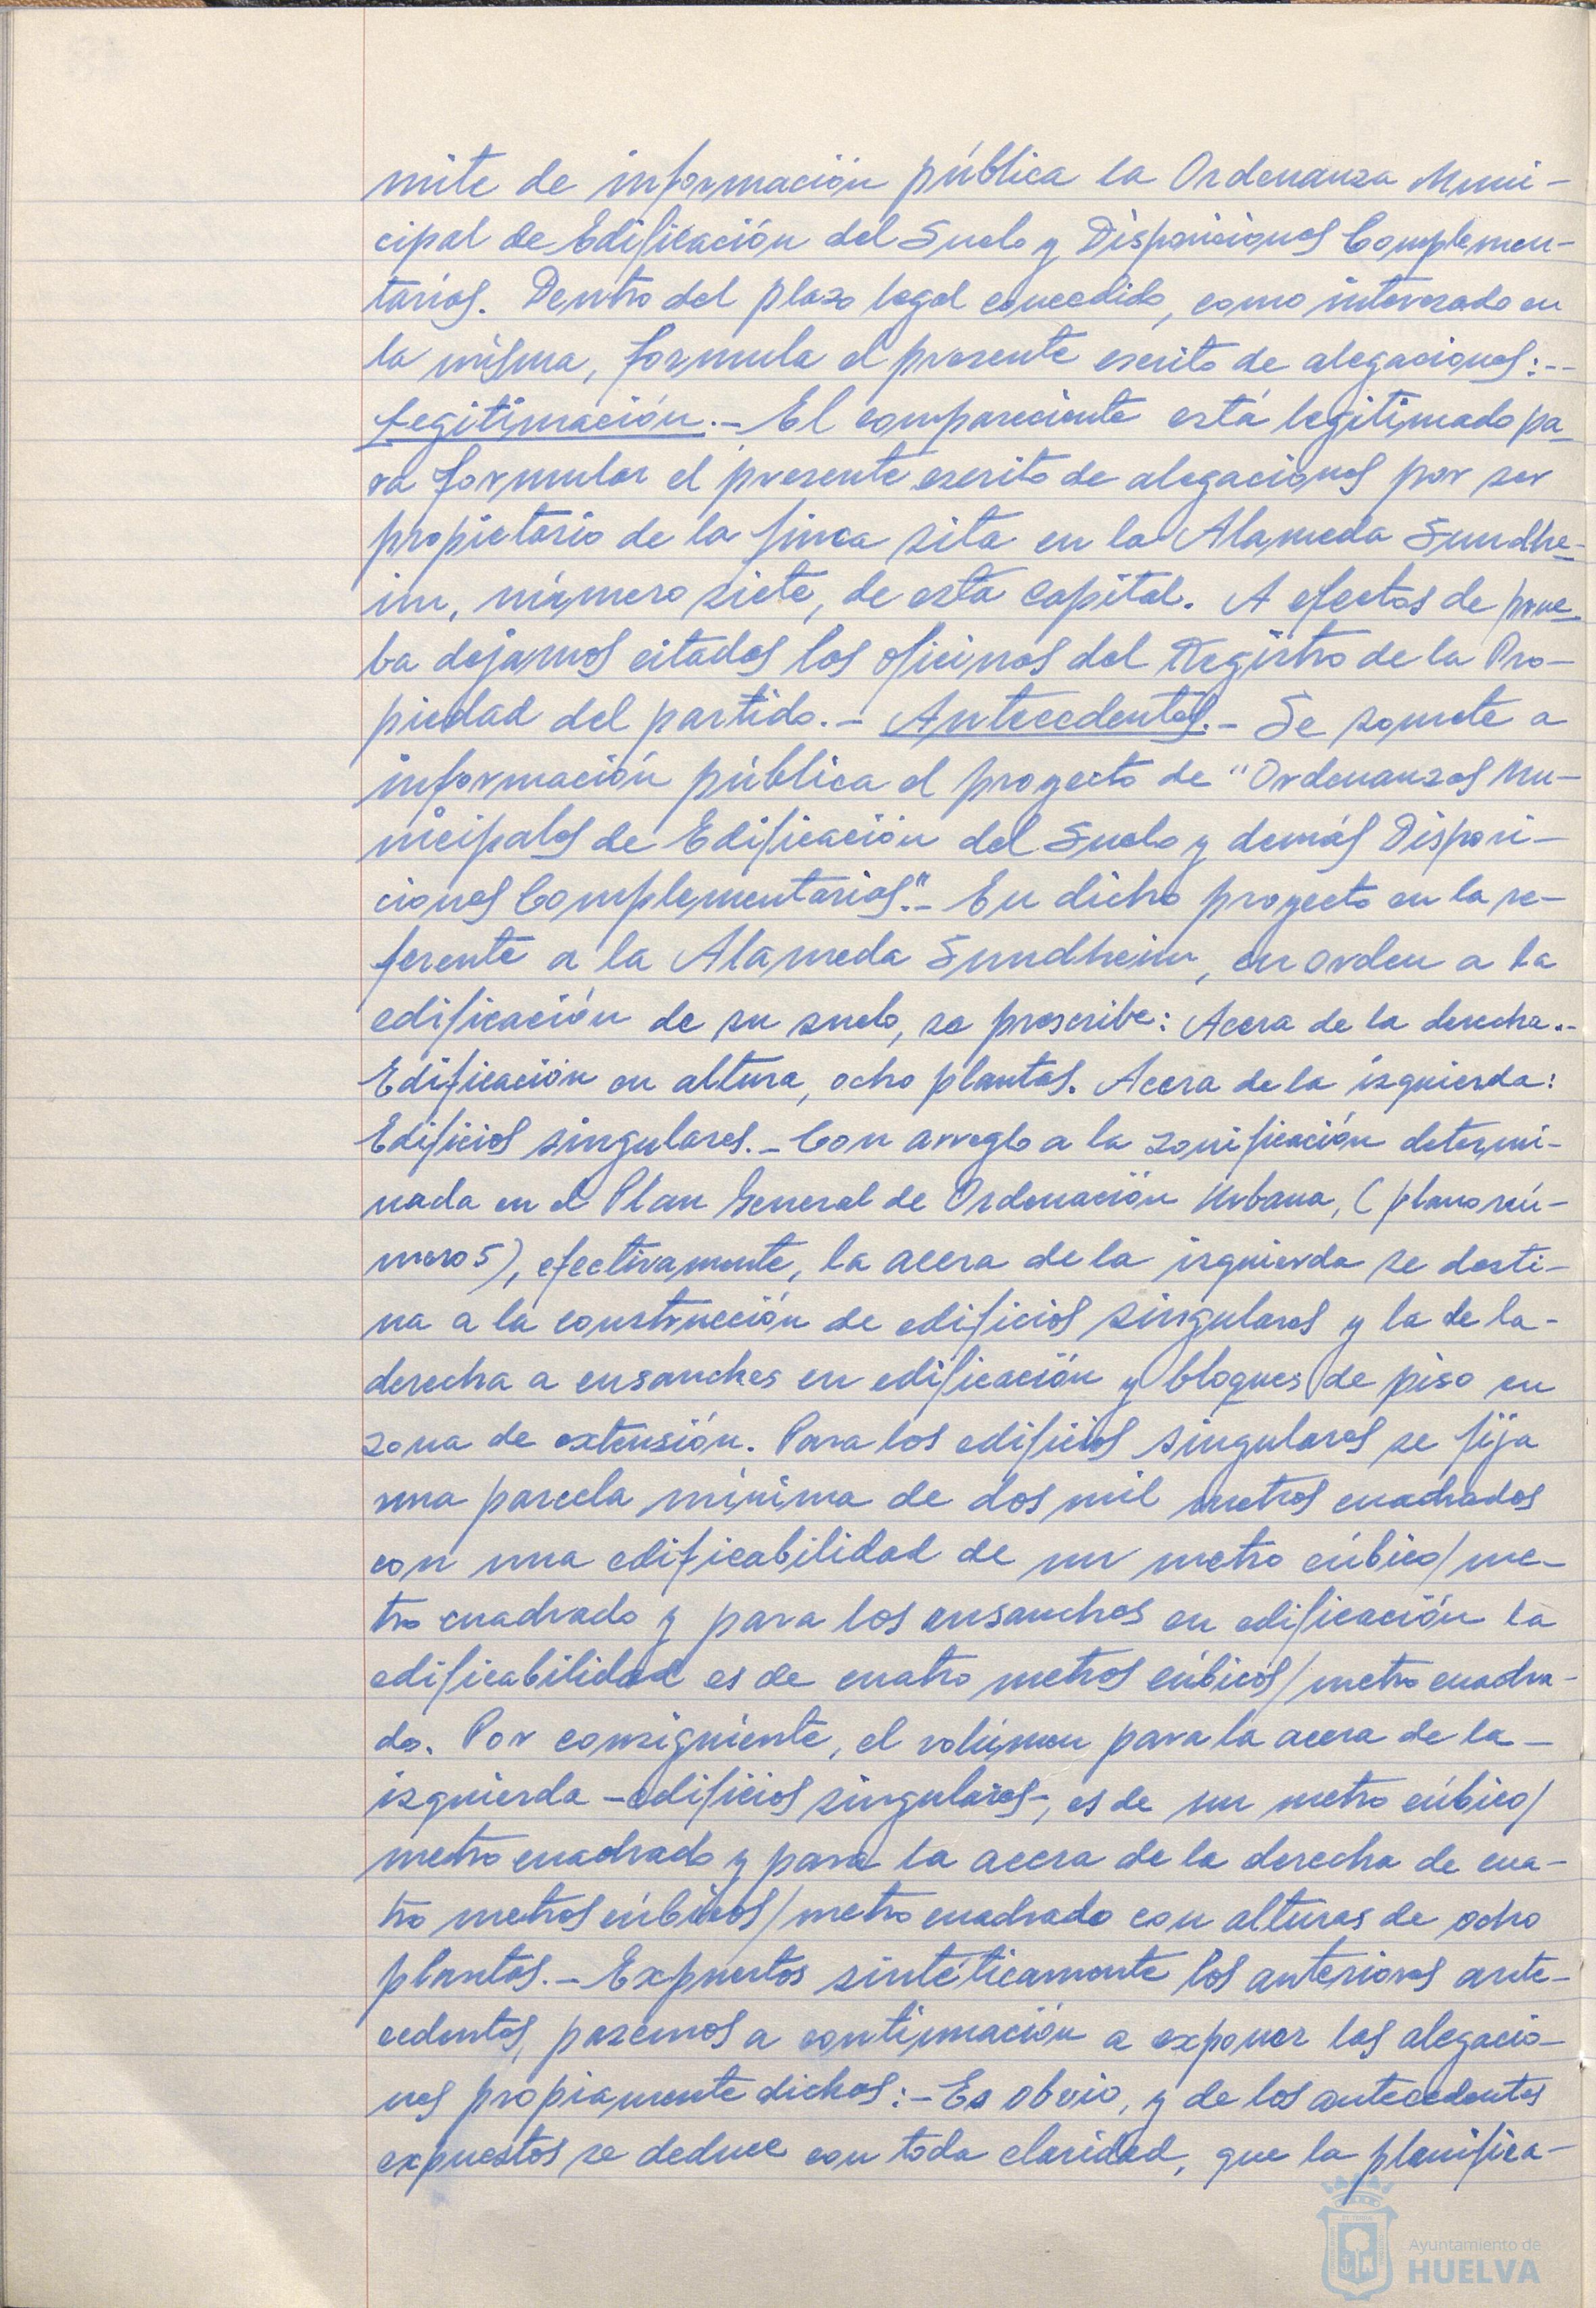 mite de información pública la Ordenanza Muni-
cipal de Edificación del Suelo y Disposiciones Complemen-
tarias. Dentro del plazo legal concedido, como interesado en
la misma, formula el presente escrito de alegaciones:--
Legitimación.- El compareciente está legitimado pa-
ra formular el presente escrito de alegaciones por ser
propietario de la finca sita en la Alameda Sundhe-
im, número siete, de esta capital. A efectos de prue-
ba dejamos citados las oficinas del Registro de la Pro-
piedad del partido.- Antecedentes.- Se somete a
información pública el proyecto de "Ordenanzas Mu-
nicipales de Edificación del Suelo y demás Disposi-
ciones Complementarias".- En dicho proyecto en la re-
ferente a la Alameda Sundheim, en orden a la
edificación de su suelo, se prescribe: Acera de la derecha.-
Edificación en altura, ocho plantas. Acera de la izquierda:
Edificios singulares.- Con arreglo a la zonificación determi-
nada en el Plan General de Ordenación Urbana, (plano nú-
mero 5), efectivamente, la acera de la izquierda se desti-
na a la construcción de edificios singulares y la de la-
derecha a ensanches en edificación y bloques de piso en
zona de extensión. Para los edificios singulares se fija
una parcela mínima de dos mil metros cuadrados
con una edificabilidad de un metro cúbico/me-
tro cuadrado y para los ensanches en edificación la
edificabilidad es de cuatro metros cúbicos/metro cuadra-
do. Por consiguiente, el volúmen para la acera de la-
izquierda -edificios singulares-, es de un metro cúbico/
metro cuadrado y para la acera de la derecha de cua-
tro metros cúbicos/metro cuadrado con alturas de ocho
plantas.- Expuestos sintéticamente los anteriores ante-
cedentes, pasemos a continuación a exponer las alegacio-
nes propiamente dichas:- Es obvio, y de los antecedentes
expuestos se deduce con toda claridad, que la planifica-
Ayuntamiento de
HUELVA